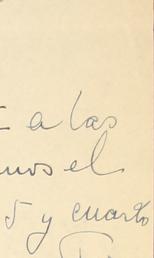 a las
mos el
5 y cuarto